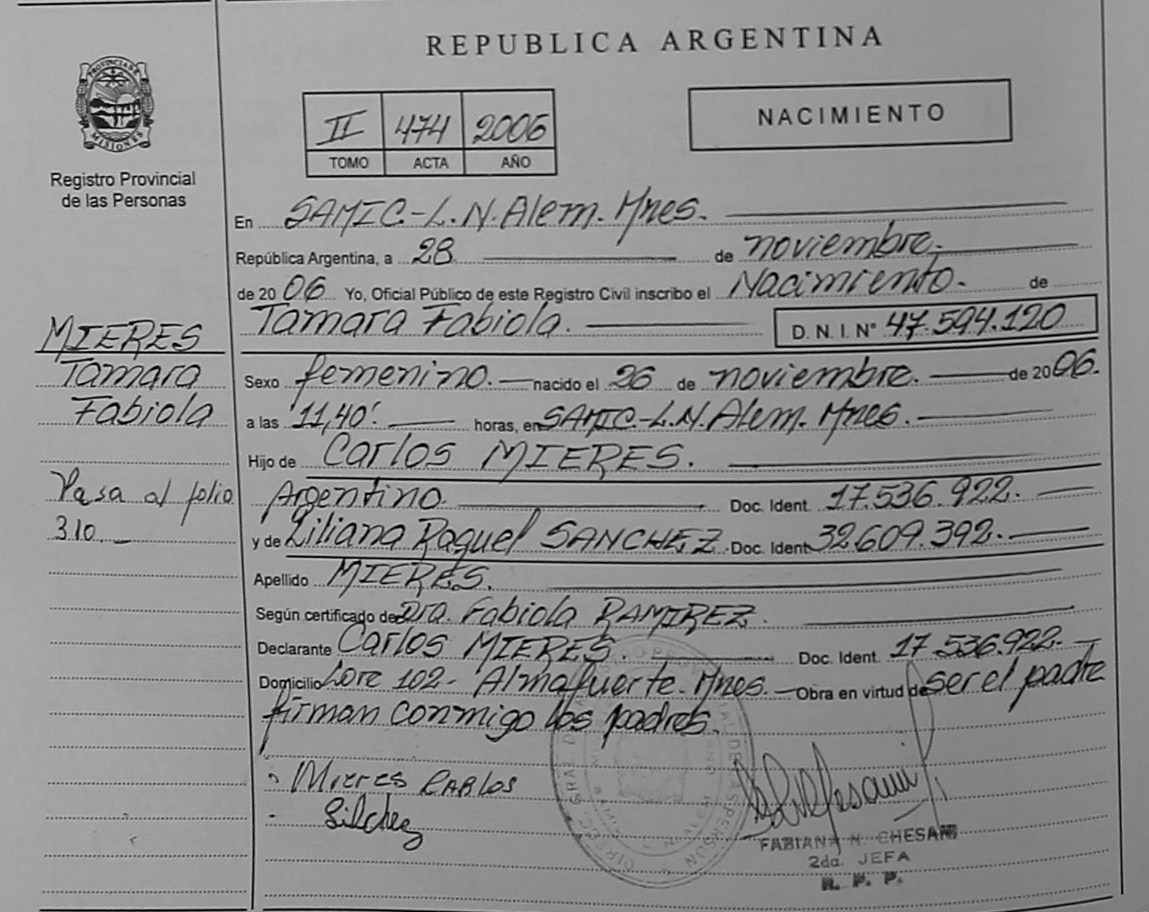 REPUBLICA ARGENTINA
PROVINCIA DE
MISIONES
Registro Provincial
de las Personas
II 474 2006
TOMO ACTA AÑO
NACIMIENTO
En SAMIC.-L.N.Alem.Mnes.
República Argentina, a 28 de noviembre.
de 2006 Yo, Oficial Público de este Registro Civil inscribo el Nacimiento. de
Tamara Fabiola. D. N. I. N° 47.594.120
MIERES
Tamara
Fabiola
Sexo femenino. nacido el 26 de noviembre. de 2006.
a las '11,40'. horas, en SAMIC.-L.N.Alem.Mnes.
Hijo de Carlos MIERES.
Pasa al folio
310._
Argentino. Doc. Ident. 17.536.922.
y de Liliana Raquel SANCHEZ. Doc. Ident. 32.609.392.
Apellido MIERES.
Según certificado de Dra. Fabiola RAMIREZ.
Declarante Carlos MIERES. Doc. Ident. 17.536.922.
Domicilio Lote 102- Almafuerte-Mnes. Obra en virtud de ser el padre
firman conmigo los padres.
Mieres CARLOS
FABIANA N. CHESANI
2da. JEFA
R. P. P.